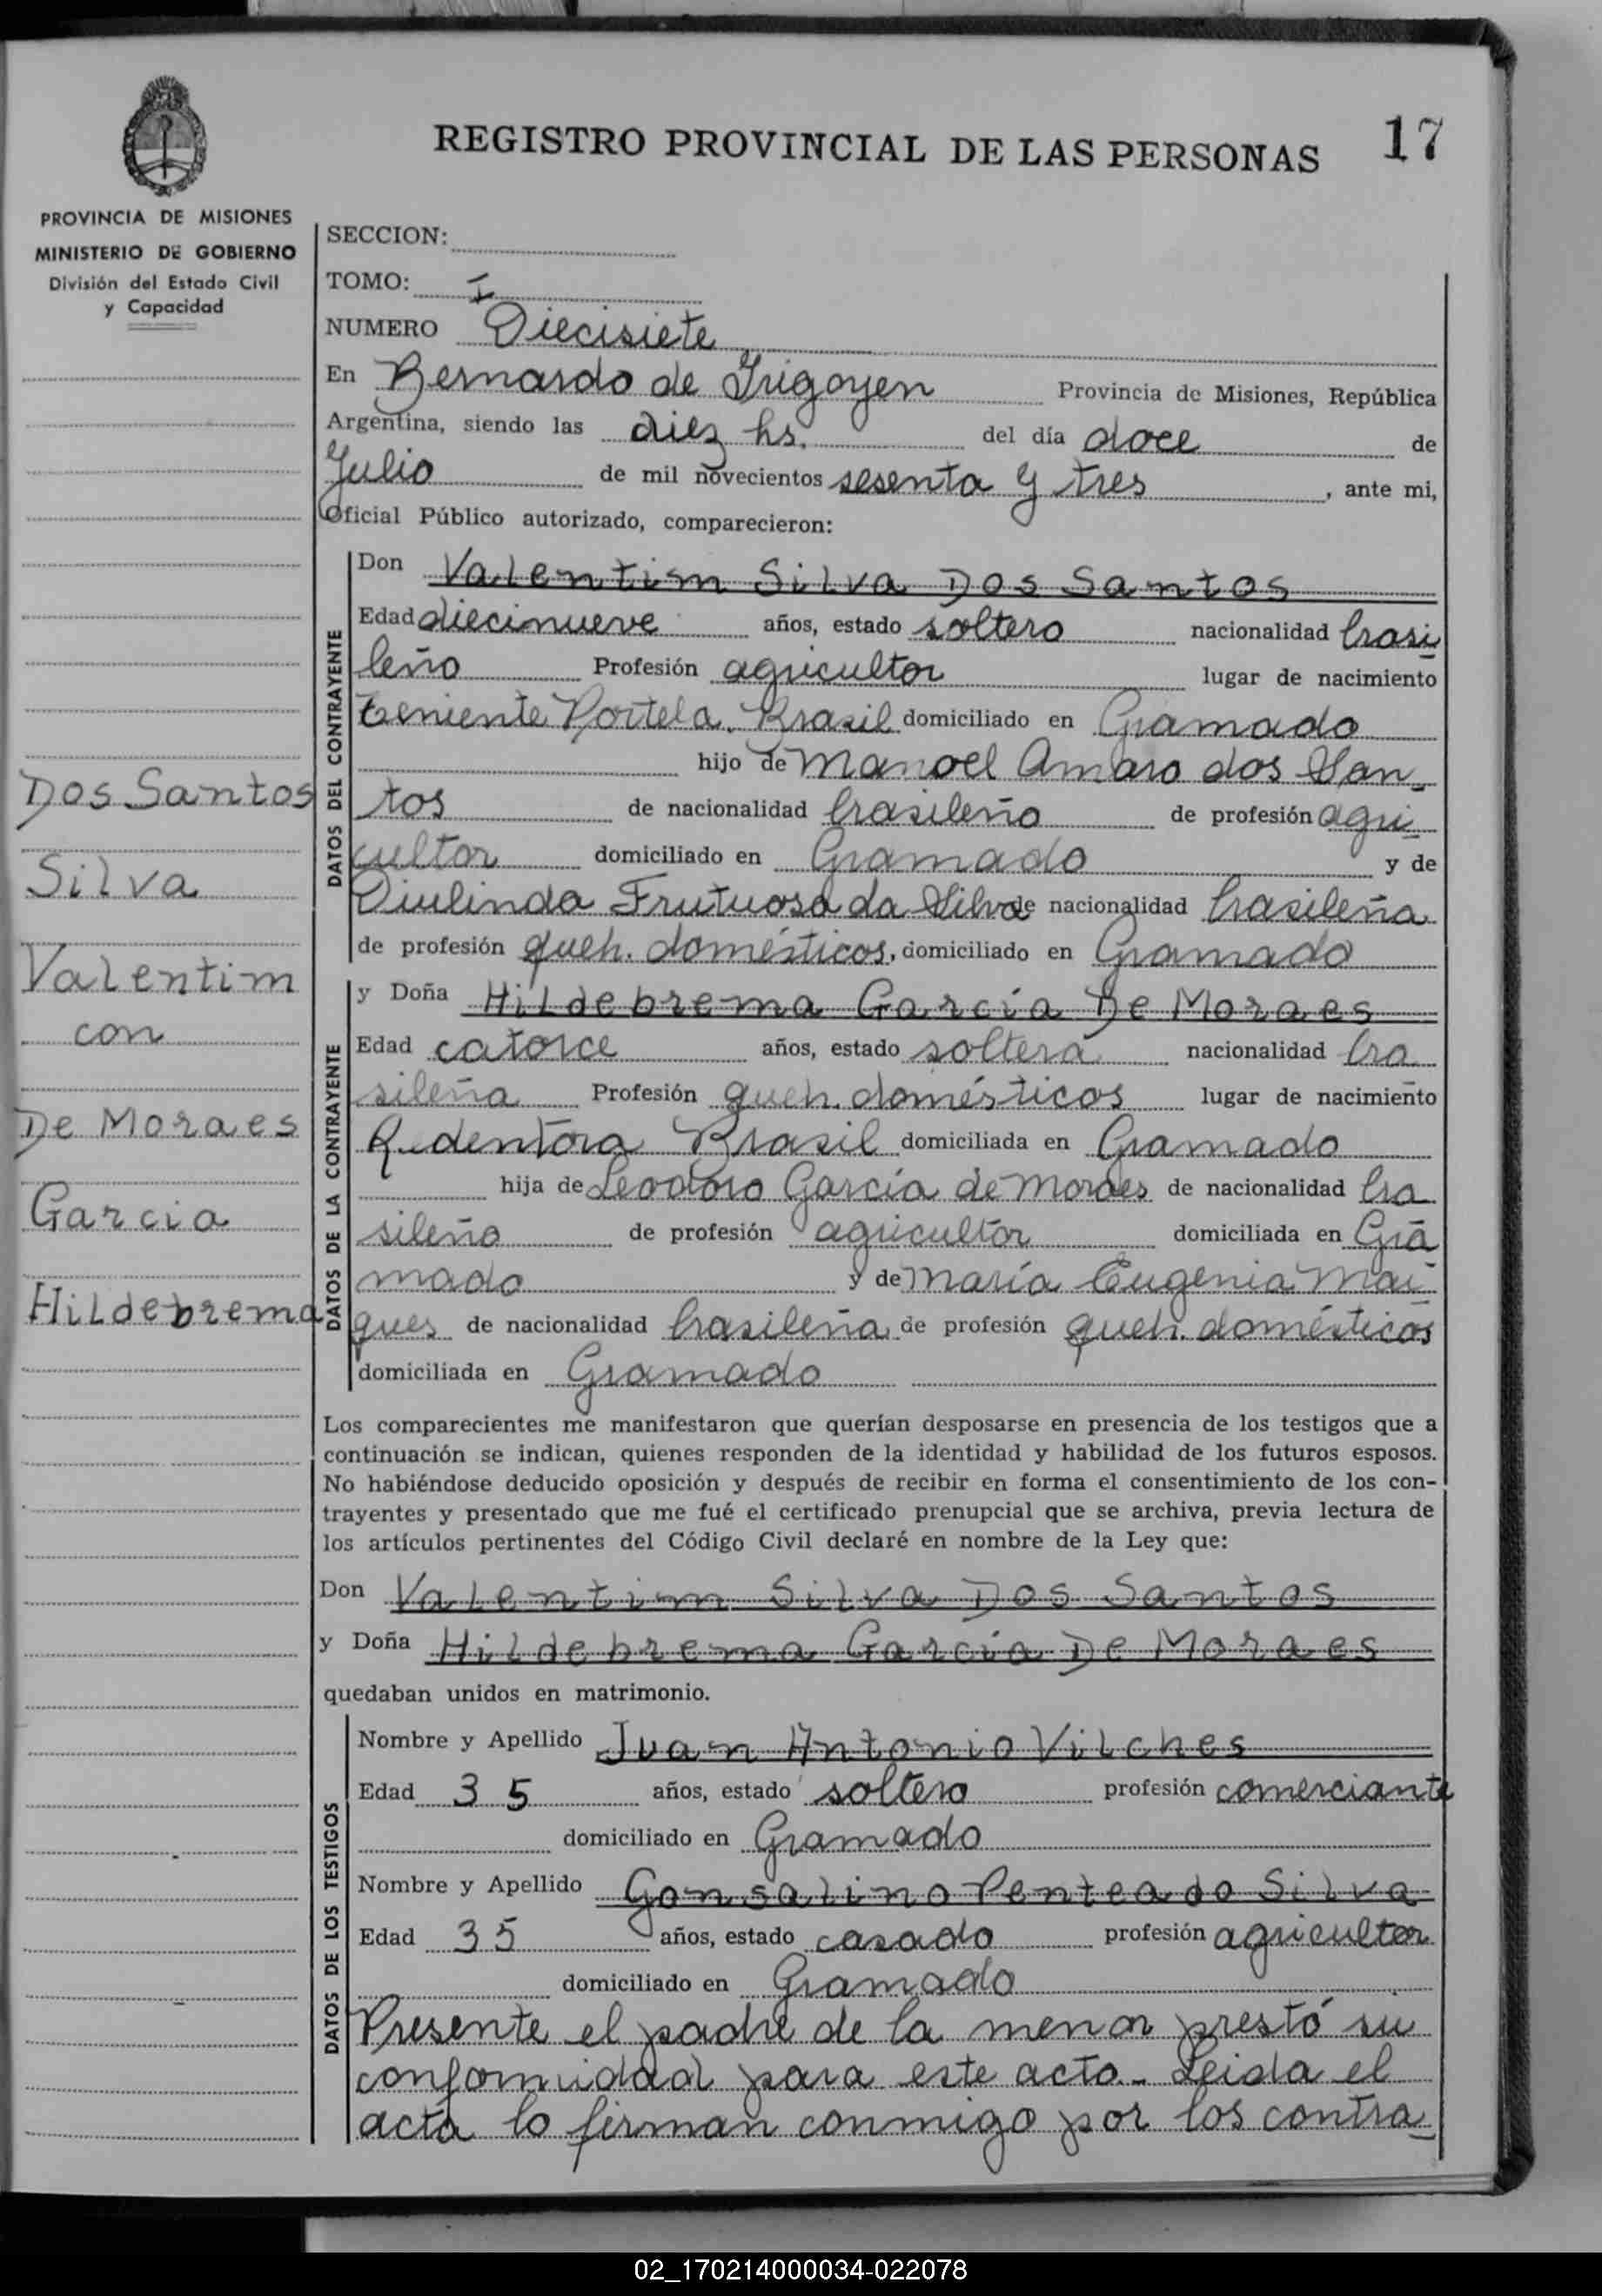 REGISTRO PROVINCIAL DE LAS PERSONAS 17
PROVINCIA DE MISIONES
MINISTERIO DE GOBIERNO
División del Estado Civil
y Capacidad
SECCION:
TOMO: I
NUMERO Diecisiete
En Bernardo de Irigoyen Provincia de Misiones, República
Argentina, siendo las diez hs. del día doce de
Julio de mil novecientos sesenta y tres, ante mi,
Oficial Público autorizado, comparecieron:
DATOS DEL CONTRAYENTE
Don Valentim Silva Dos Santos
Edad diecinueve años, estado soltero nacionalidad brasi
leño Profesión agricultor lugar de nacimiento
teniente Portela. Brasil domiciliado en Gramado
hijo de Manoel Amaro dos San
tos de nacionalidad brasileño de profesión agri
cultor domiciliado en Gramado y de
Frutuosa da Silva de nacionalidad brasileña
de profesión queh. domésticos, domiciliado en Gramado
DATOS DE LA CONTRAYENTE
y Doña Hildebrema García De Moraes
Edad catorce años, estado soltera nacionalidad bra
sileña Profesión queh. domésticos lugar de nacimiento
Redentora Brasil domiciliada en Gramado
hija de Leodoro García de Moraes de nacionalidad bra
sileño de profesión agricultor domiciliada en Gra
mado y de María Eugenia Mar
ques de nacionalidad brasileña de profesión queh. domésticos
domiciliada en Gramado
Dos Santos
Silva
Valentim
con
De Moraes
Garcia
Hildebrema
Los comparecientes me manifestaron que querían desposarse en presencia de los testigos que a
continuación se indican, quienes responden de la identidad y habilidad de los futuros esposos.
No habiéndose deducido oposición y después de recibir en forma el consentimiento de los con-
trayentes y presentado que me fué el certificado prenupcial que se archiva, previa lectura de
los artículos pertinentes del Código Civil declaré en nombre de la Ley que:
Don Valentim Silva Dos Santos
y Doña Hildebrema García De Moraes
quedaban unidos en matrimonio.
DATOS DE LOS TESTIGOS
Nombre y Apellido Juan Antonio Vilches
Edad 35 años, estado soltero profesión comerciante
domiciliado en Gramado
Nombre y Apellido Gonsalino Penteado Silva
Edad 35 años, estado casado profesión agricultor
domiciliado en Gramado
Presente el padre de la menor prestó su
conformidad para este acto. Leida el
acta lo firman conmigo por los contra
02_170214000034-022078